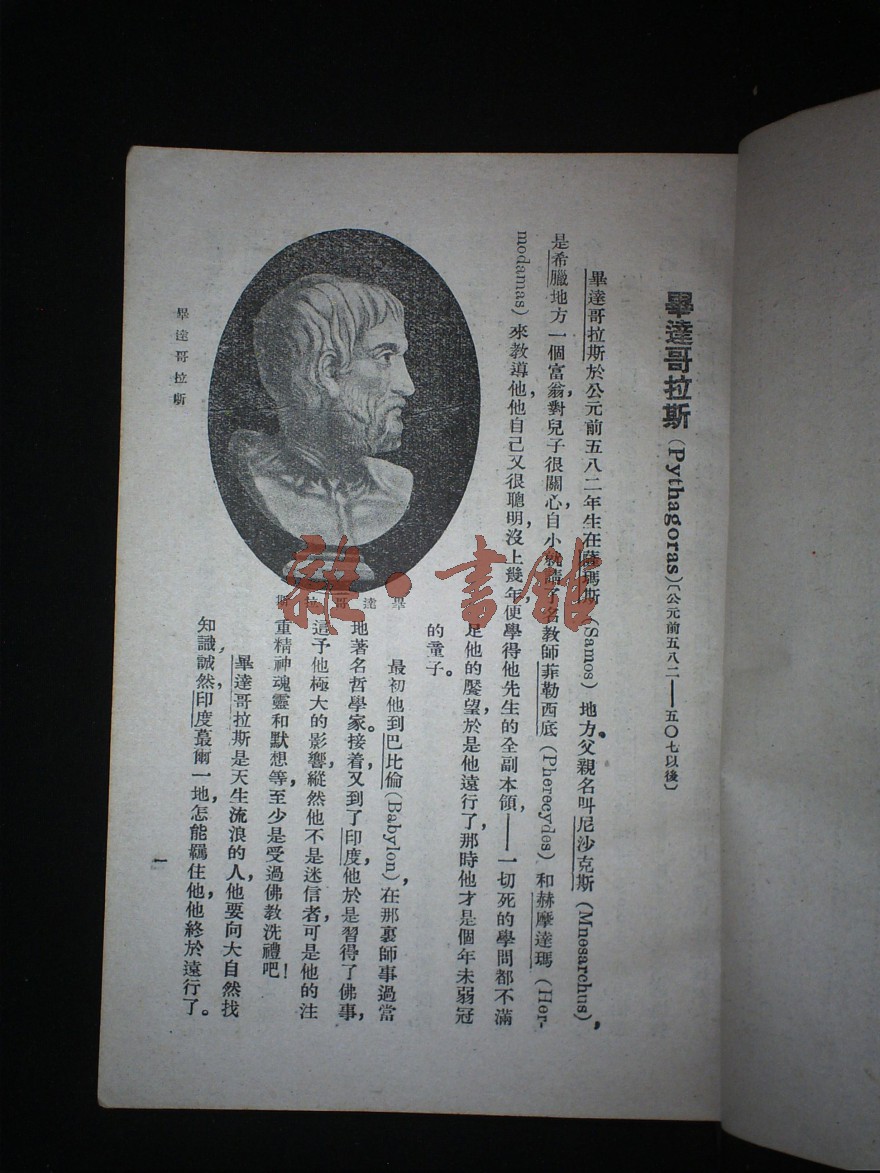 畢達哥拉斯(Pythagoras)〔公元前五八二——五〇七以後〕
畢達哥拉斯於公元前五八二年生在薩瑪斯(Samos)地方。父親名叫尼沙克斯(Mnesarchus),
是希臘地方一個富翁,對兒子很關心,自小就請了名教師菲勒西底(Pherecydes)和赫摩達瑪(Her-
modamas)來教導他,他自己又很聰明,沒上幾年,便學得他先生的全副本領——一切死的學問都不滿
足他的饜望,於是他遠行了,那時他才是個年未弱冠
的童子。
最初他到巴比倫(Babylon),在那裏師事過當
地著名哲學家。接着,又到了印度,他於是習得了佛事,
這予他極大的影響,縱然他不是迷信者,可是他的注
重精神魂靈和默想等,至少是受過佛教洗禮吧!
畢達哥拉斯是天生流浪的人,他要向大自然找
知識,誠然,印度蕞爾一地,怎能羈住他,他終於遠行了。
斯拉哥達畢
畢達哥拉斯
一
雜·書館